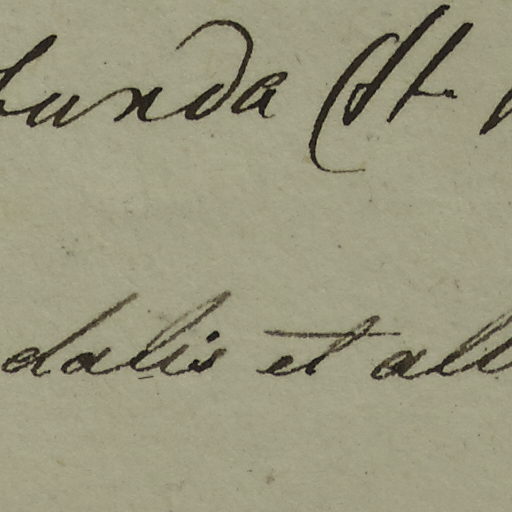 unda (St.
dalis et all